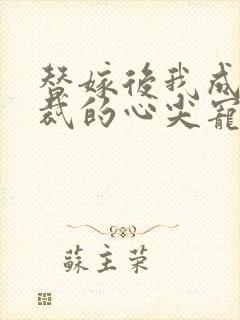 替嫁後我成
裁的心尖寵
蘇主荣